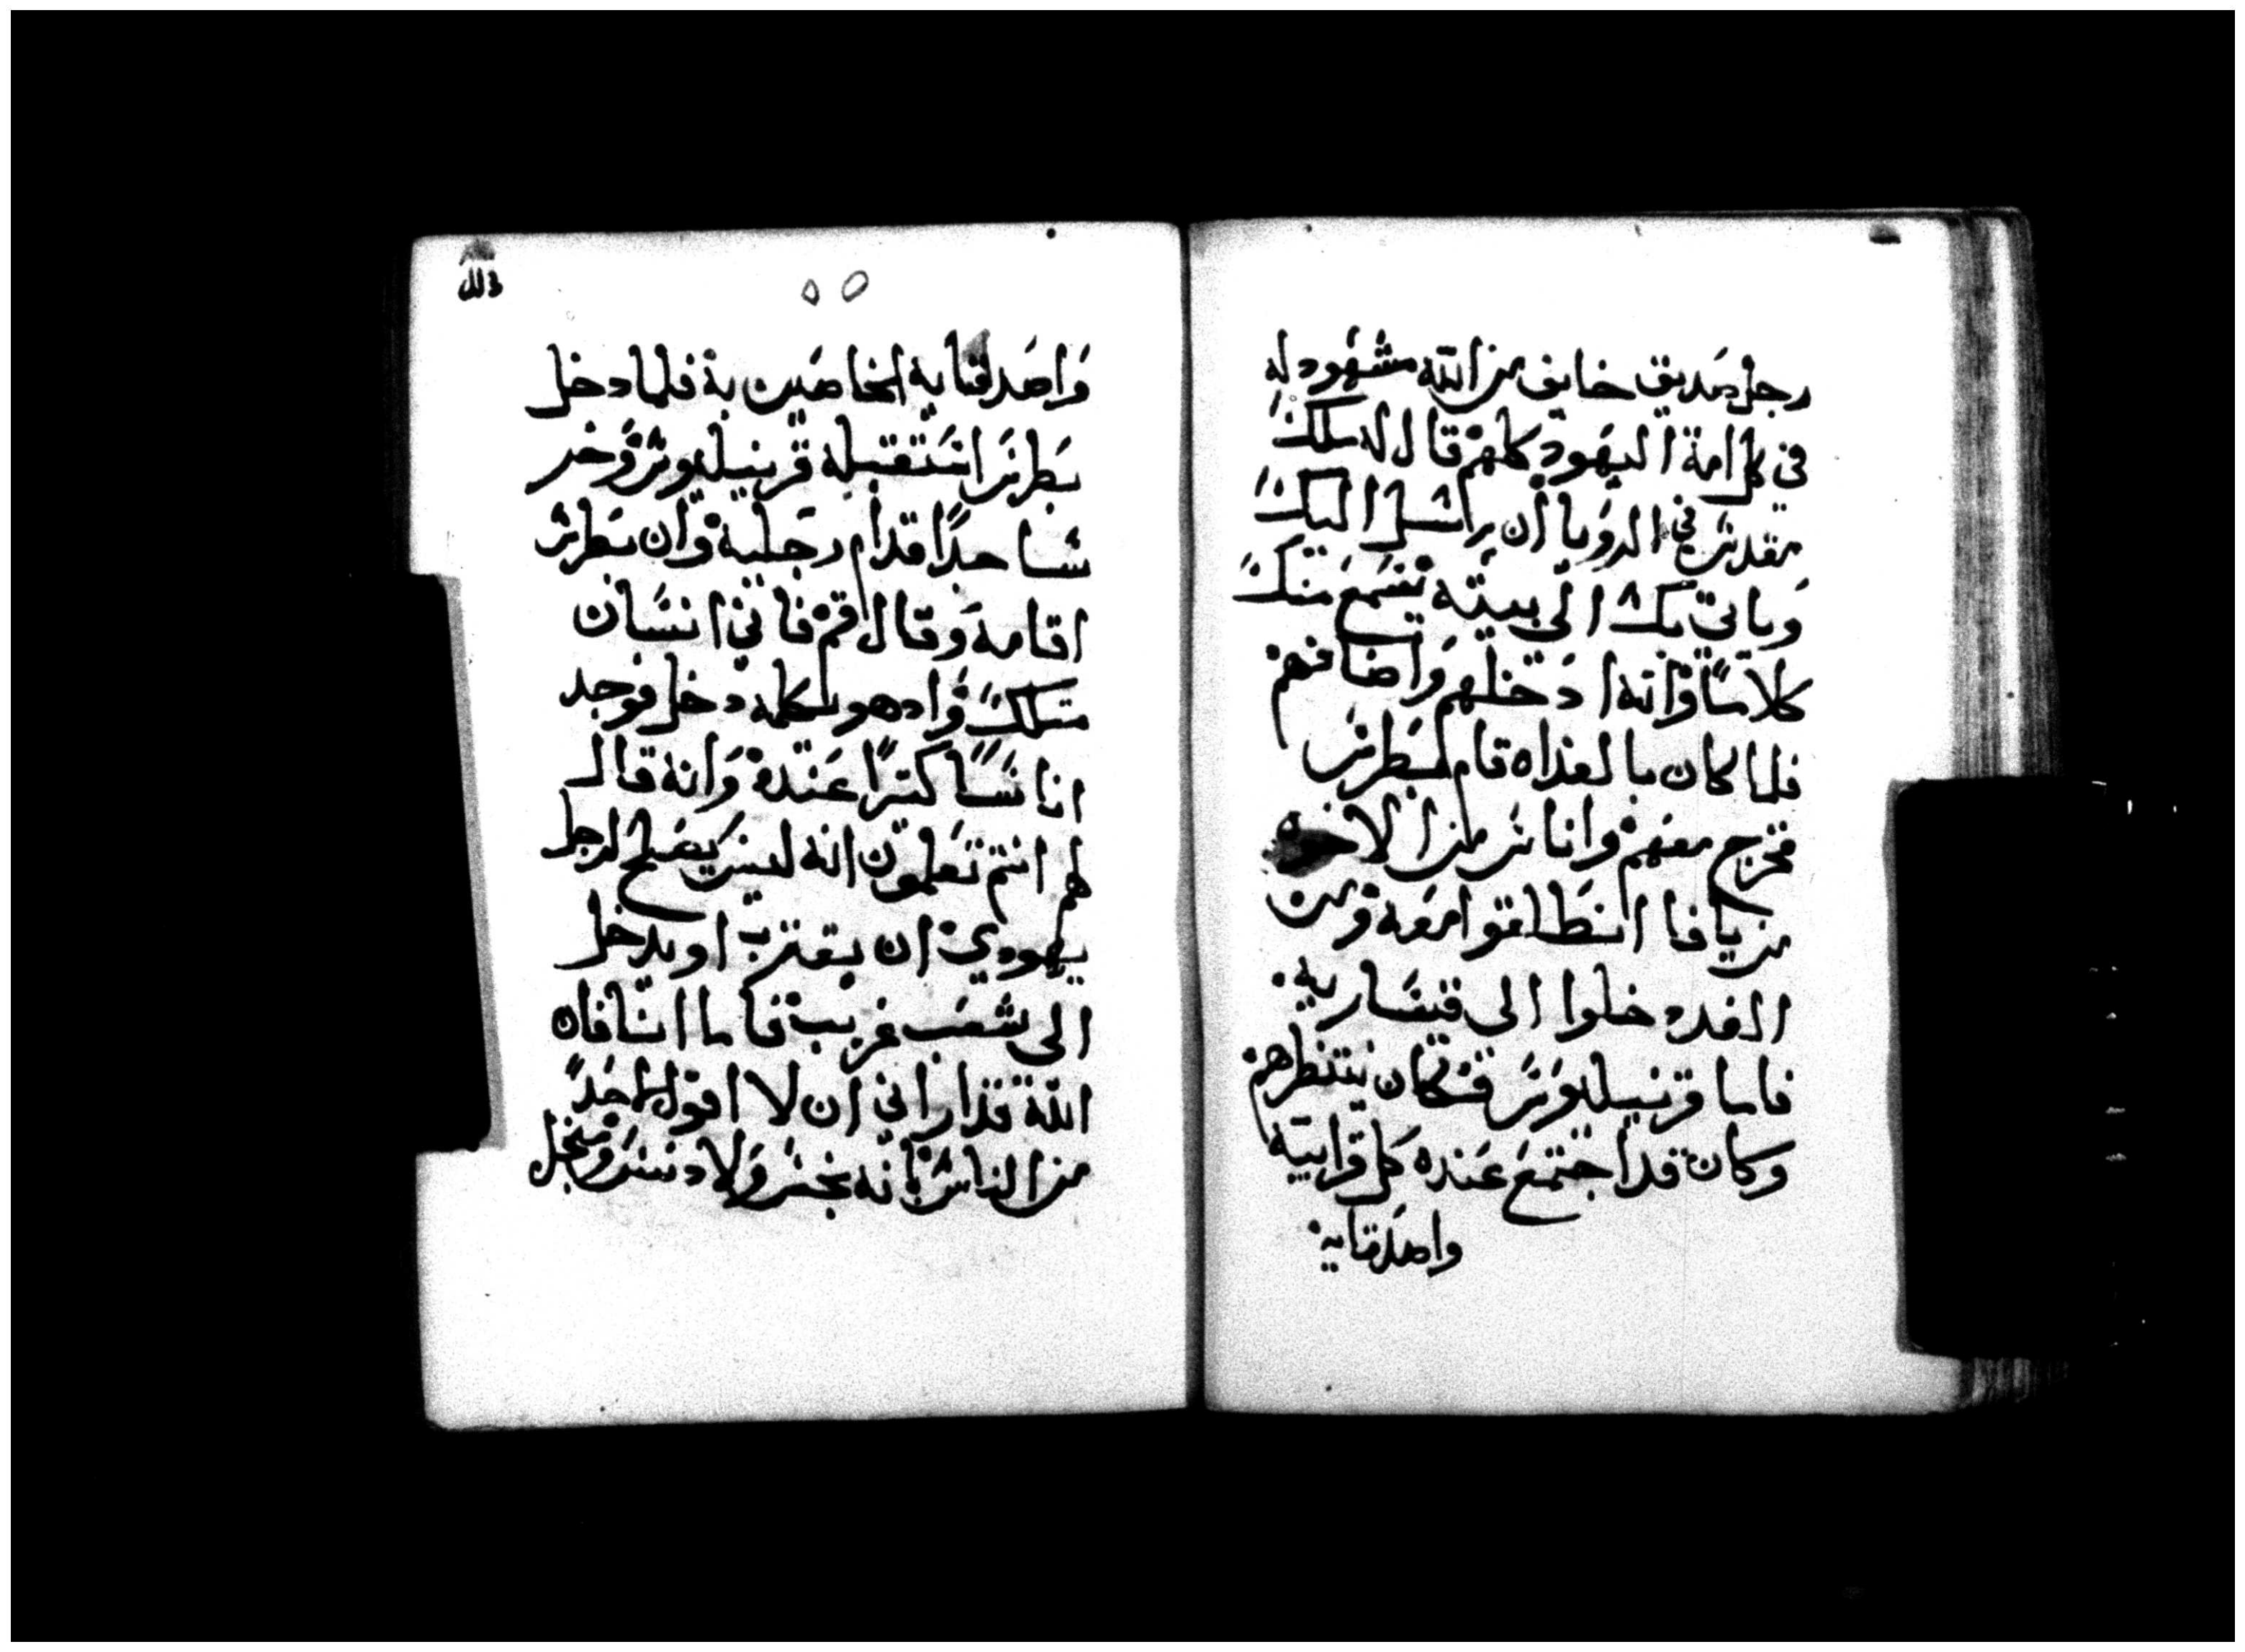 رجل صديق خايف من الله مشهود له
في كل امة اليهود كلهم قال له ملك
مقدس في الرويا أن يراسل اليك
وياتي بك الى بيته تسمع منك
كلاماً وانه ادخلهم واضافهم
فلما كان بالغداه قام بطرس
فخرج معهم واناس من الاخوه
من يافا انطلقوا معه ومن
الغد دخلوا الى قيساريه
فاما قرنيليوس فكان ينتظرهم
وكان قد اجتمع عنده كل قرابيه
واصدقايه
٥٥
واصدقايه الخاصين به فلما دخل
بطرس استقبله قرنيليوس وخر
ساجداً قدام رجليه وان بطرس
اقامه وقال قم فاني انسان
متلك واد هو يكلمه دخل فوجد
اناساً كتيراً عنده وانه قال
لهم انتم تعلمون انه ليس يصلح لرجل
يهودي ان يقترب او يدخل
الى شعب غريب فاما انا فان
الله قد اراني ان لا اقول لاحداً
من الناس بانه نجس ولا دنس